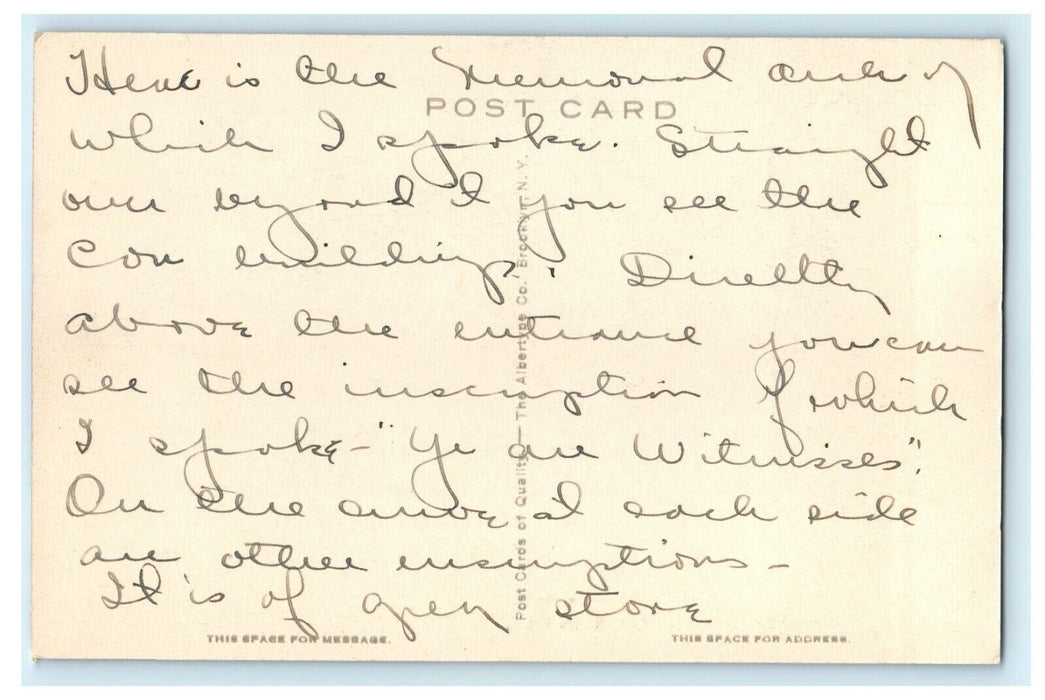 Here is the Memorial arch of
POST CARD
which I spoke. Straight
over beyond it you see the
Cox building. Directly
above the entrance you can
see the inscription of which
I spoke - "Ye are Witnesses".
On the curve at each side
are other inscriptions -
It is of grey stone
Post Cards of Quality. — The Albertype Co., Brooklyn, N. Y.
THIS SPACE FOR MESSAGE.
THIS SPACE FOR ADDRESS.